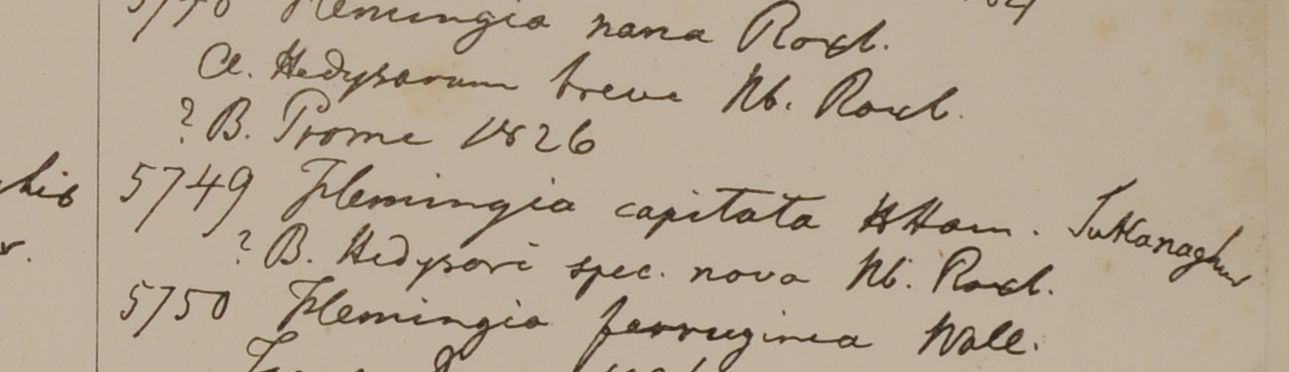 5748 Flemingia nana Roxb.
a. Hedysarum breve Hb. Roxb.
? B. Prome 1826
5749 Flemingia capitata HHam.
? B. Hedysari spec. nova Hb. Roxb.
5750 Flemingia ferruginea Wall.